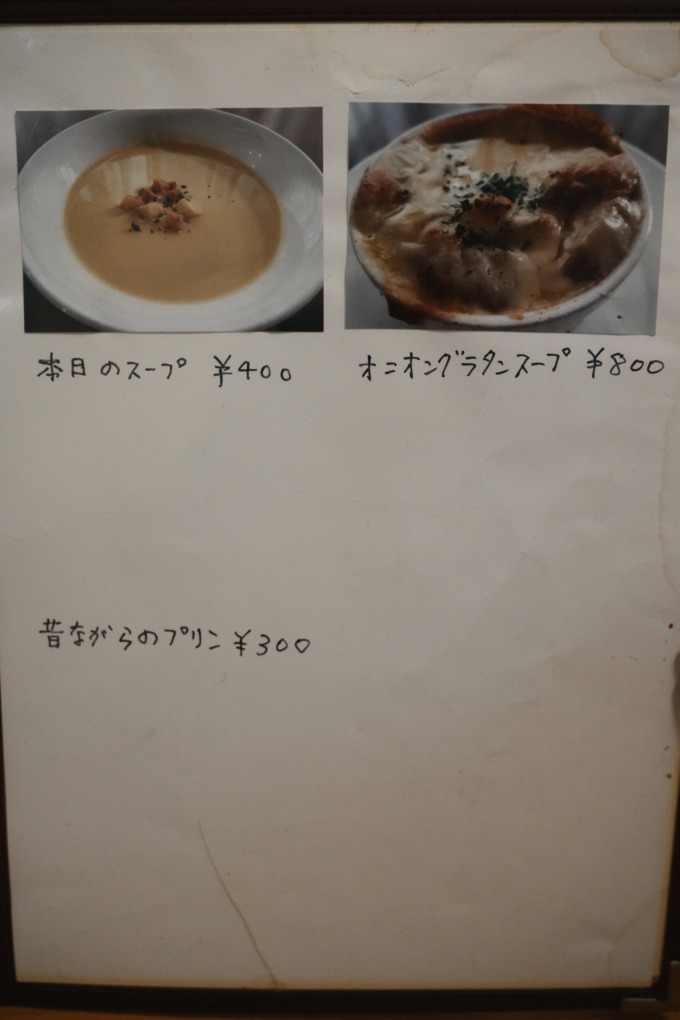 本日のスープ ¥400
オニオングラタンスープ ¥800
昔ながらのプリン ¥300